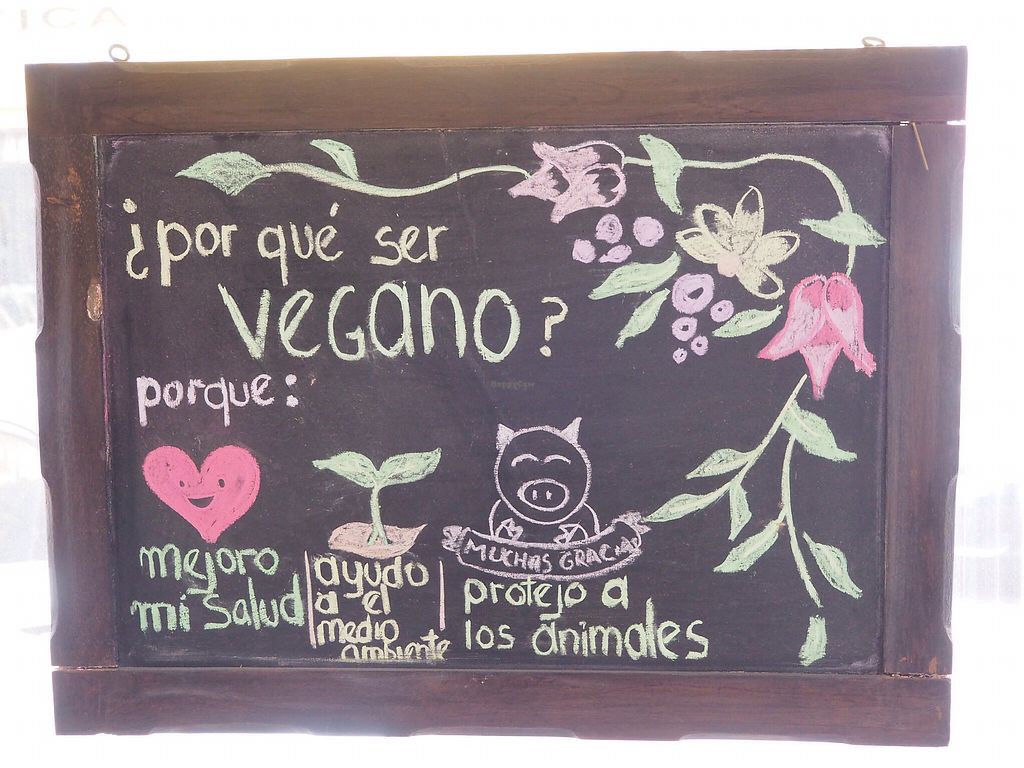 TICA
¿por qué ser
vegano?
porque:
HappyCow
mejoro
mi salud
ayudo
a el
medio
ambiente
MUCHAS GRACIAS
protejo a
los animales